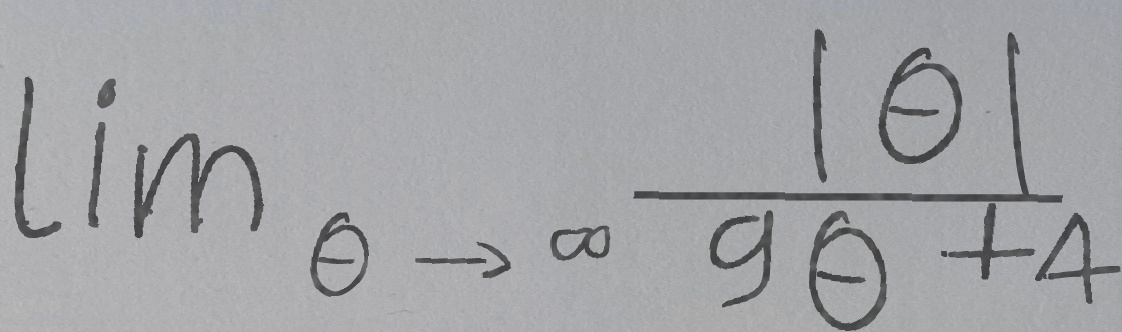 lim θ → ∞ |θ| / 9θ + 4